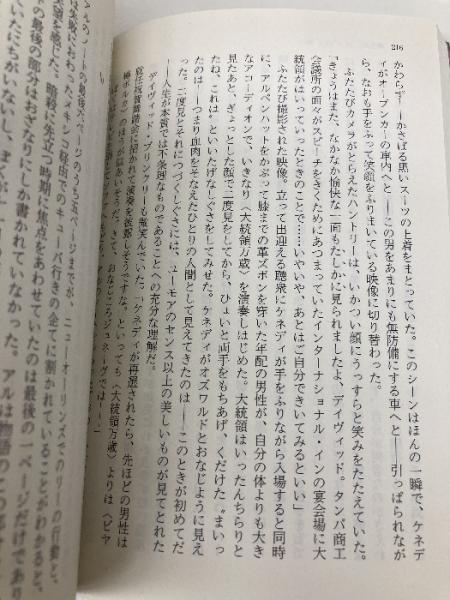 216
かわらず――かさばる黒いスーツの上着をまとっていた。このシーンはほんの一瞬で、ケネデ
ィがオープンカーの車内へと――この男をあまりにも無防備にする車へと――引っぱられなが
ら、なおも手をふって笑顔をふりまいている映像に切り替わった。
ふたたびカメラがとらえたハントリーは、いかつい顔にうっすらと笑みをたたえていた。
「きょうはまた、なかなか愉快な一面もたしかに見られましたよ、デイヴィッド。タンパ商工
会議所の面々がスピーチをきくためにあつまっていたインターナショナル・インの宴会場に大
統領がはいっていったときのことで……いやいや、あとはご自分できいてみるといい」
ふたたび撮影された映像。立って出迎える聴衆にケネディが手をふりながら入場すると同時
に、アルペンハットをかぶって膝までの革ズボンを穿いた年配の男性が、自分の体よりも大き
なアコーディオンで、いきなり〈大統領万歳〉を演奏しはじめた。大統領はいったんちらりと
見たあと、ぎょっとした顔で二度見をしてから、ひょいと両手をもちあげ、くだけた〝まいっ
たね、これは〟といいたげなしぐさをしてみせた。ケネディがオズワルドとおなじように見え
たのは――つまり血肉をそなえたひとりの人間として見えてきたのは――このときが初めてだ
った。二度見とそれにつづくしぐさには、ユーモアのセンス以上の美しいものが見てとれた
――人生が本質では不条理なものであることへの充分な理解だ。
デイヴィッド・ブリンクリーも微笑んでいた。「ケネディが再選されたら、先ほどの男性は
就任祝賀舞踏会に招かれて演奏を披露しそうですな。といっても〈大統領万歳〉よりは〈ビヤ
樽ポルカ〉のほうが似あいそうだ。さて、おなじころジュネーヴでは……」
アルのノートの最後の六ページのうち五ページまでが、ニューオーリンズでのリーの
は失敗におわったメキシコ経由でのキューバ行きの企てに割かれていることがわかると、
失望を感じた。暗殺に先立つ時期に焦点をあわせていたのは最後の一ページだけであり、
その最後の部分はおざなりにしか書かれていなかった。アルは物語のこの
ていたにちがいないし、